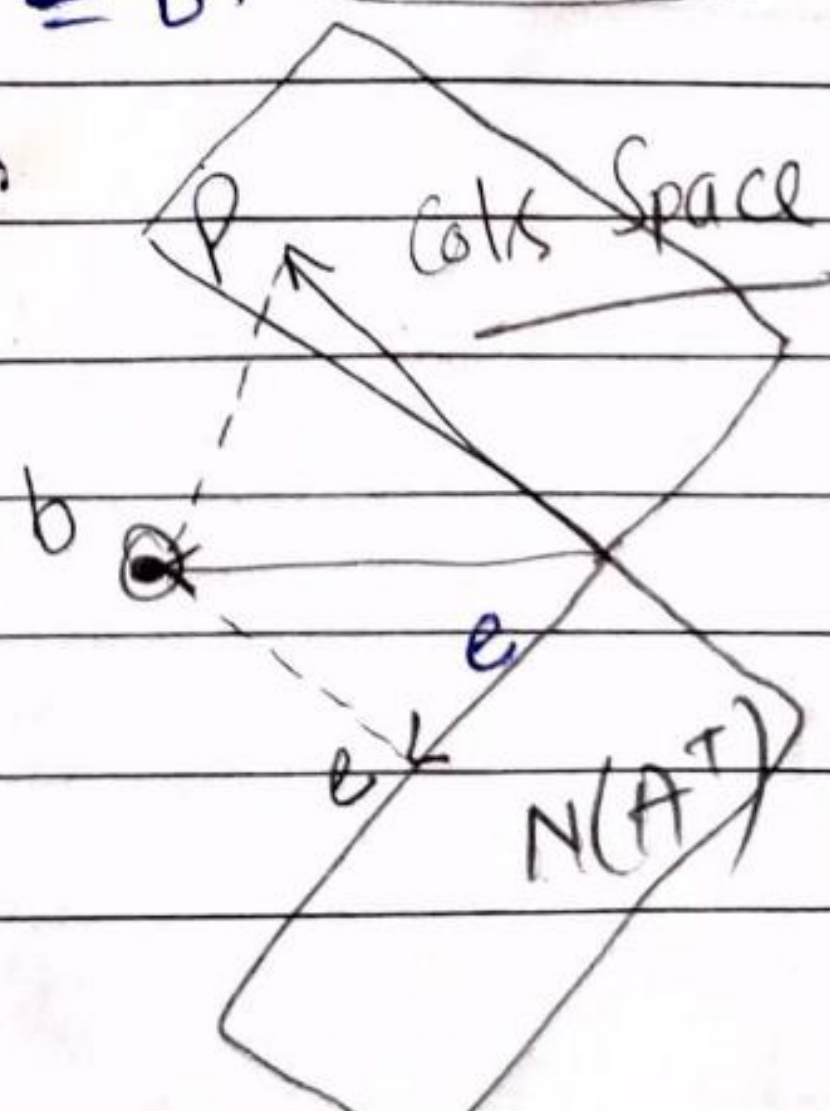 = b.
P
Cols Space
b
e
e
N(A^T)